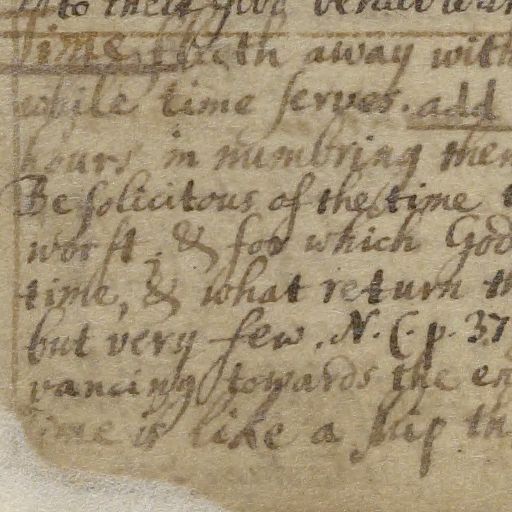 to their
Time flieth away with
while time serves. add
hours in numbring them
Be solicitous of the time
worst, & for which God
time, & what return th
but very few. N. C. p. 37
vancing towards the en
time is like a ship th